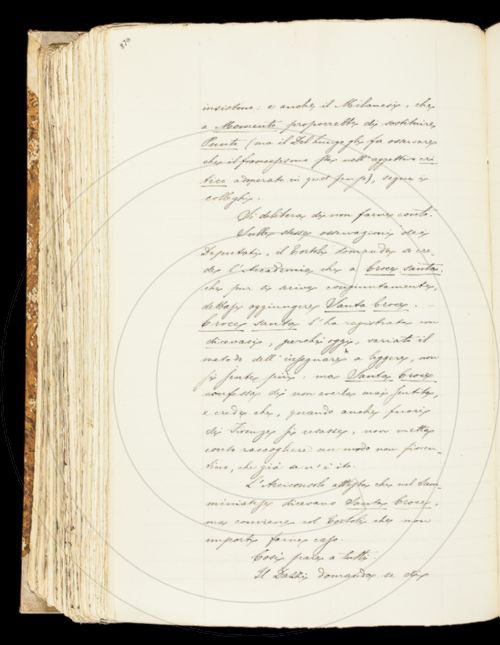 870
insistono: e anche il Milanesi, che
a Momenti proporrebbe di sostituire
Punti (ma il Del Lungo gli fa osservare
che il francesismo sta nell'aggettivo cri
tico adoperato in quel senso), segue i
colleghi.
Si delibera di non farne conto.
Sulle stesse osservazioni dei
Deputati, il Tortoli domanda se cre
de l'Accademia che a Croce santa,
che pur si scrive congiuntamente,
debbasi aggiungere Santa Croce. –
Croce santa l'ha registrata con
dicevasi, perchè oggi, variato il
metodo dell'insegnare a leggere, non
si sente più: ma Santa Croce
confessa di non averla mai sentita,
e crede che, quando anche fuori
di Firenze si usasse, non metta
conto raccogliere un modo non fioren-
tino, che già se n'è ito.
L'Arciconsolo attesta che nel Sam-
miniatese dicevano Santa Croce,
ma conviene col Tortoli che non
importi farne caso.
Così pare a tutti.
Il Dazzi domanda se di